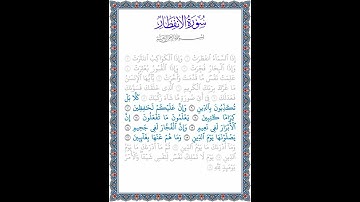 سُورَةُ الِانْفِطَارِ
بِسْمِ اللَّهِ الرَّحْمَٰنِ الرَّحِيمِ
إِذَا السَّمَاءُ انْفَطَرَتْ وَإِذَا الْكَوَاكِبُ انْتَثَرَتْ
وَإِذَا الْبِحَارُ فُجِّرَتْ وَإِذَا الْقُبُورُ بُعْثِرَتْ
عَلِمَتْ نَفْسٌ مَا قَدَّمَتْ وَأَخَّرَتْ يَٰأَيُّهَا الْإِنْسَٰنُ
فَعَدَلَكَ فِي أَيِّ صُورَةٍ مَا شَاءَ رَكَّبَكَ كَلَّا بَلْ
تُكَذِّبُونَ بِالدِّينِ وَإِنَّ عَلَيْكُمْ لَحَٰفِظِينَ
كِرَامًا كَٰتِبِينَ يَعْلَمُونَ مَا تَفْعَلُونَ إِنَّ
الْأَبْرَارَ لَفِي نَعِيمٍ وَإِنَّ الْفُجَّارَ لَفِي جَحِيمٍ
يَصْلَوْنَهَا يَوْمَ الدِّينِ وَمَا هُمْ عَنْهَا بِغَائِبِينَ
وَمَا أَدْرَىٰكَ مَا يَوْمُ الدِّينِ ثُمَّ مَا أَدْرَىٰكَ مَا يَوْمُ
الدِّينِ يَوْمَ لَا تَمْلِكُ نَفْسٌ لِنَفْسٍ شَيْئًا وَالْأَمْرُ
يَوْمَئِذٍ لِلَّهِ